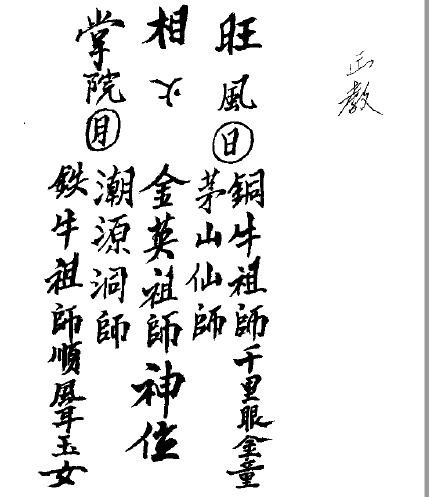 正教
旺風日
銅牛祖師千里眼金童
茅山仙師
相火
金英祖師神位
掌院月
潮源洞師
鉄牛祖師順風耳玉女